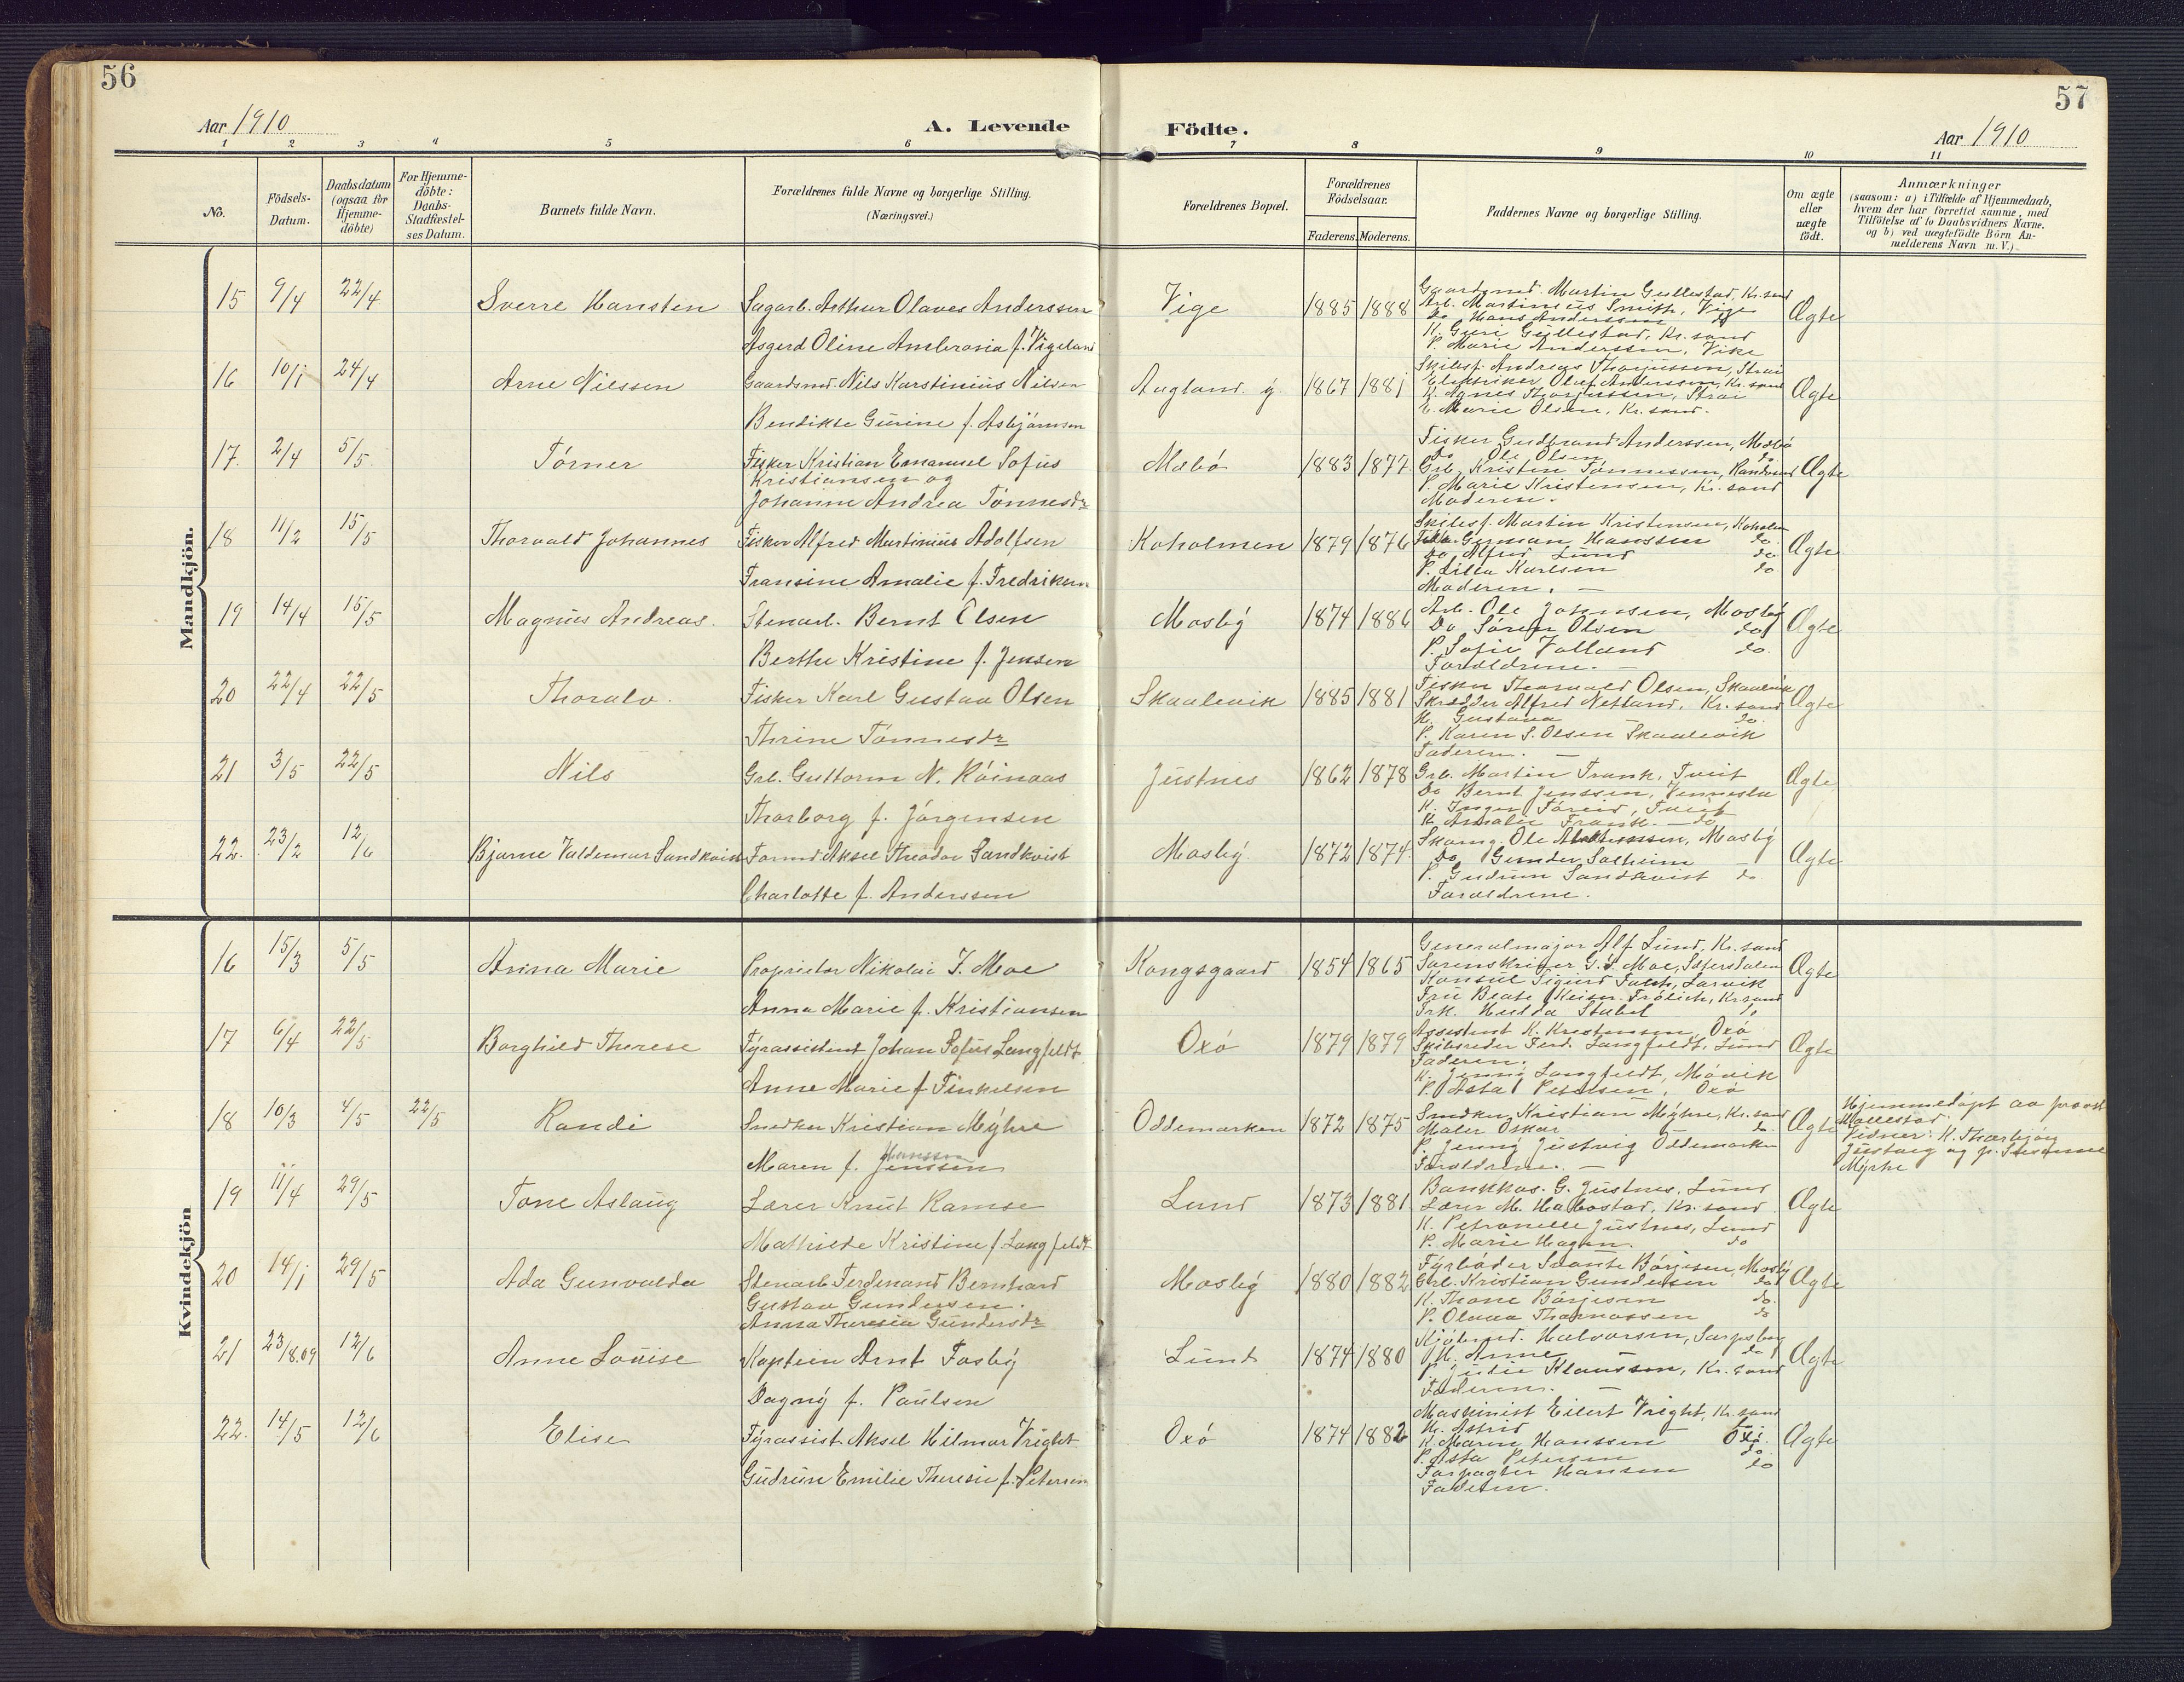 56
57
Aar 1910
A. Levende
Födte.
Aar 1910
1 2 3 4 5 6 7 8 9 10 11
No.
Födsels-Datum.
Daabsdatum (ogsaa for Hjemme-döbte)
For Hjemme-döbte: Daabs-Stadfæstel-ses Datum.
Barnets fulde Navn.
Forældrenes fulde Navne og borgerlige Stilling.
(Næringsvei.)
Forældrenes Bopæl.
Forældrenes Födselsaar.
Faderens. Moderens.
Faddernes Navne og borgerlige Stilling.
Om ægte eller uægte födt.
Anmærkninger
(saasom: a) i Tilfælde af Hjemmedaab,
hvem der har forrettet samme, med
Tilföielse af to Daabsvidners Navne,
og b) ved uægtefödte Börn An-
melderens Navn m. V.)
Mandkjön.
15 9/4 22/4 Sverre Hansten
Sagarb. Arthur Olaves Anderssen
Asgerd Oline Ambrosia f. Vigeland
Vige 1885 1888
Gaardsmd. Martin Gullestad, Kr.sand
Arb. Martinius Smith, Vige
Do Hans Anderssen do
K. Guri Gullestad, Kr.sand
P. Marie Anderssen, Vike
Ægte
16 10/1 24/4 Arne Nilssen
Gaardsmd. Nils Karstinius Nilsen
Bendikte Gurine f. Asbjørnsen
Augland. g. 1867 1881
Skilesf. Andreas Thorjussen, Strai
Elektriker Oluf Anderssen, Kr.sand
K. Agnes Thorjussen, Strai
E. Marie Olsen, Kr.sand.
Ægte
17. 2/4 5/5 Tørner
Fisker Kristian Emanuel Sofus
Kristiansen og
Johanne Andrea Tønnesdr
Mæbø 1883 1877
Fisker Gudbrand Anderssen, Mæbø
Do Ole Olsen do
Grb. Kristen Tønnessen, Randøsund
P. Marie Kristensen, Kr.sand
Moderen.
Ægte
18 11/2 15/5 Thorvald Johannes
Fisker Alfred Martinius Adolfsen
Fransine Amalie f. Fredriksen
Koholmen 1879 1876
Skilesf. Martin Kristensen, Koholm
Fisker German Hanssen do
Do Alfred Lund do
P. Lilla Karlsen do
Moderen. —
Ægte
19 14/4 15/5 Magnus Andreas.
Stenarb. Bernt Olsen
Berthe Kristine f. Jensen
Mosby 1874 1886
Arb. Ole Johnsen, Mosby
Do Søren Olsen do
P. Sofie Volland do.
Forældrene. —
Ægte
20 22/4 22/5 Thoralv.
Fisker Karl Gustav Olsen
Thrine Tønnesdr
Skaalevik 1885 1881
Fisker Thorvald Olsen, Skaalevik
Skrædder Alfred Netland, Kr.sand
K. Gustava do.
P. Karen S. Olsen Skaalevik
Faderen. —
Ægte
21 3/5 22/5 Nils
Grb. Guttorm N. Røinaas
Thorborg f. Jørgensen
Justnes 1862 1878
Grb. Martin Frank, Tveit
Do Bernt Jenssen, Vennesla
K. Inger Føreid, Tveit
K. Amalie Frank. — do
Ægte
22. 23/2 12/6 Bjarne Valdemar Sandkvist
Formd. Aksel Theodor Sandkvist
Charlotte f. Anderssen
Mosby 1872 1874.
Skomg. Ole, Mosby
Do Gunder Solheim
P. Gudrun Sandkvist do
Forældrene.
Ægte
Kvindekjön
16 15/3 5/5 Anna Marie
Proprietær Nikolai I. Moe
Anna Marie f. Kristiansen
Kongsgaard 1854 1865
Generalmajor Alf. Lund, Kr.sand
Sorenskriver G. S. Moe, Sætersdalen
Konsul Sigurd Falch, Larvik
Fru Beate Keiser Frölich, Kr.sand
Frk. Hulda Stabel do
Ægte
17 6/4 22/5 Borghild Therese
Fyrassistent Johan Sofus Langfeldt
Anne Marie f. Finkelsen
Oxø 1879 1879
Assistent K. Kristensen, Oxø
Skibsreder Ferd. Langfeldt, Lund
Faderen.
K. Jenny Langfeldt, Møvik
P. Asta Petersen, Oxø
Ægte
18 10/3 4/5 22/5 Randi
Snedker Kristian Myhre
Maren f. Jenssen
Hanssen
Oddemarken 1872 1875
Snedker Kristian Myhre, Kr.sand
Maler Oskar do.
P. Jenny Justvig Oddemarken
Forældrene. —
Ægte
Hjemmedøpt av provst
Møllestad.
Vidner: K. Thorbjørg
Justvig og p. Susanne
Myrhe
19 11/4 29/5 Tone Aslaug
Lærer Knut Ramse
Mathilde Kristine f. Langfeldt
Lund 1873 1881
Bankkas. G. Justnes, Lund
Lærer M. Habostad, Kr.sand
K. Petronelle Justnes, Lund
P. Marie Hagen. do
Ægte
20 14/1 29/5 Ada Gunvalda
Stenarb Ferdinand Bernhard
Gustav Gundersen.
Anna Theresia Gundersdr
Mosby 1880 1882
Fyrbøder Svante Børjesen, Mosby
Grb. Kristian Gundersen do
K. Thone Børjesen do.
P. Olava Thomassen do
Ægte
21 23/8.09 12/6 Anne Louise
Kaptein Arnt Fosby
Dagny f. Paulsen
Lund 1874 1880
Kjøbmd. Halvorsen, Sarpsborg
K. Anne do
P. Julie Klausson, Kr.sand
Faderen. —
Ægte
22. 14/5 12/6 Elise
Fyrassist. Aksel Hilmar Vright
Gudrun Emilie Theresie f. Petersen
Oxø 1874 1882
Maskinist Eilert Vright, Kr.sand
K. Astrid — do
K. Maren Hanssen Oxø.
P. Asta Petersen do
Forpagter Hansen do
Faderen.
Ægte